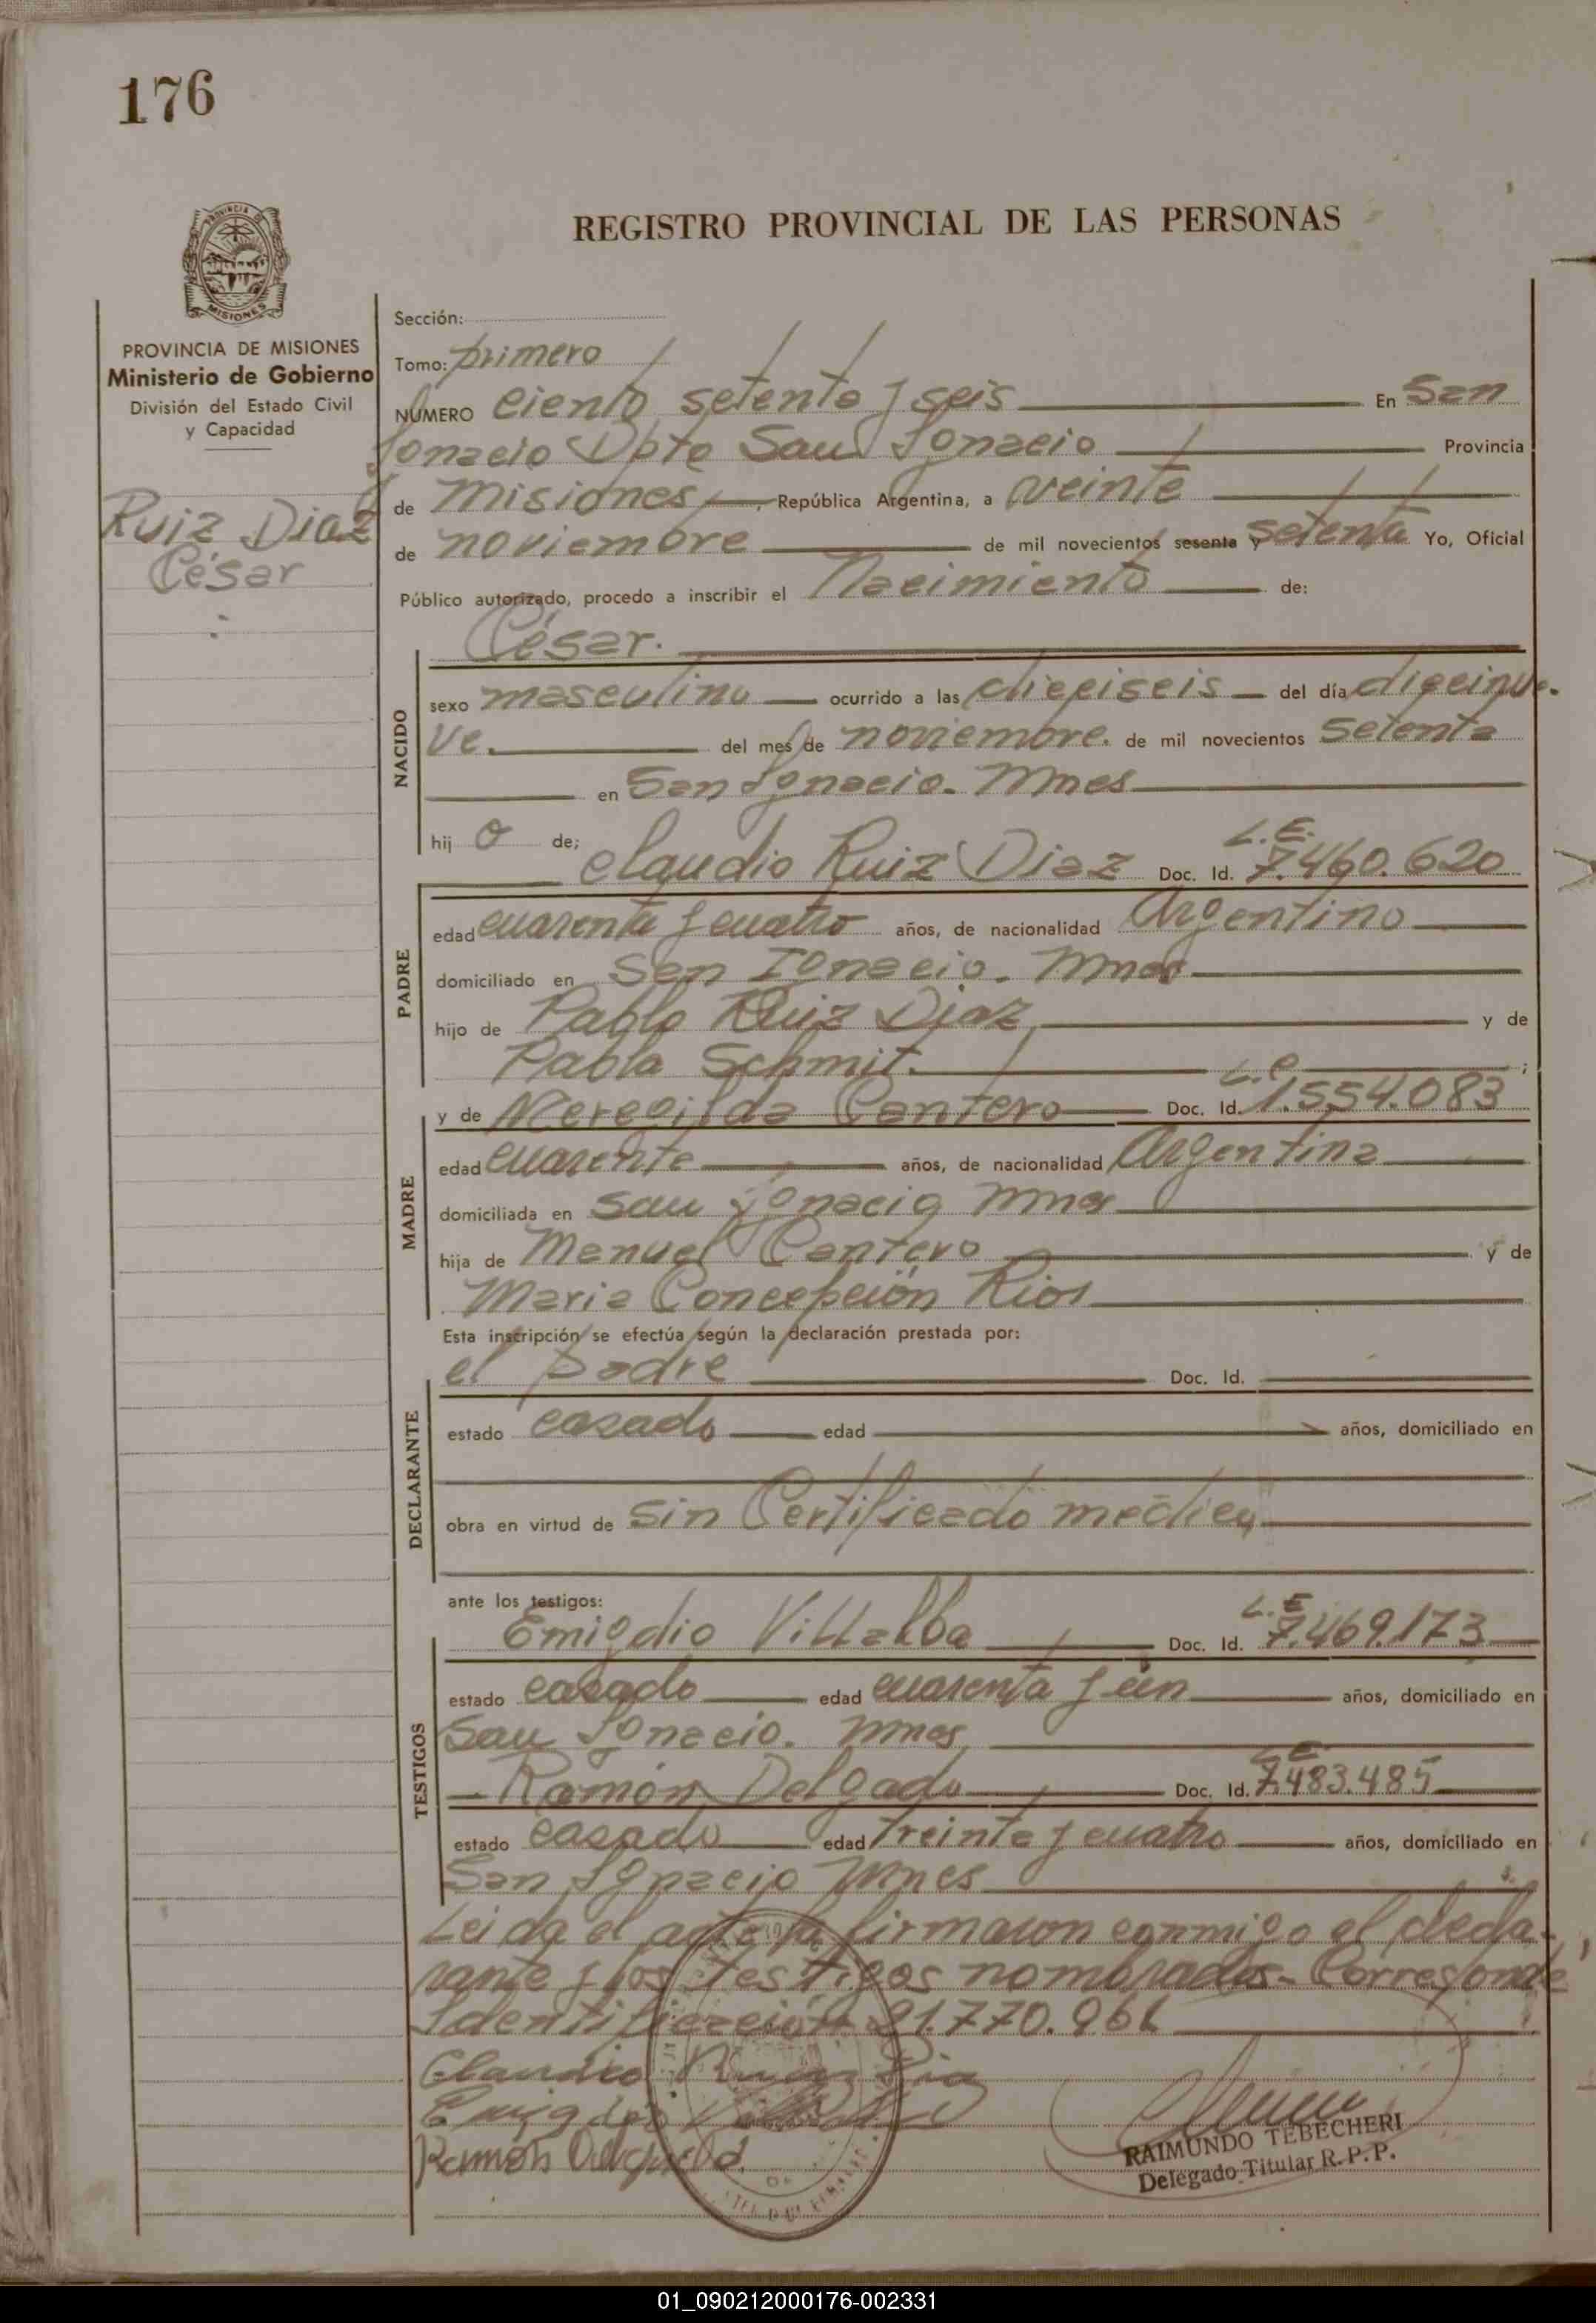 176
PROVINCIA DE
MISIONES
REGISTRO PROVINCIAL DE LAS PERSONAS
PROVINCIA DE MISIONES
Ministerio de Gobierno
División del Estado Civil
y Capacidad
Ruiz Diaz
César
Sección:
Tomo: primero
NÚMERO ciento setenta y seis En San
Ignacio Dpto San Ignacio Provincia
de Misiones, República Argentina, a veinte
de noviembre de mil novecientos sesenta y setenta Yo, Oficial
Público autorizado, procedo a inscribir el Nacimiento de:
César.
NACIDO
sexo masculino ocurrido a las dieciseis del día diecinue-
ve. del mes de noviembre. de mil novecientos setenta
en San Ignacio. Mnes
hij o de;
L.E.
Claudio Ruiz Diaz Doc. Id. 7.460.620
PADRE
edad cuarenta y cuatro años, de nacionalidad Argentino
domiciliado en San Ignacio. Mnes
hijo de Pablo Ruiz Diaz y de
Pabla Schmit. ;
L.C.
MADRE
y de Meregilda Cantero Doc. Id. 1.554.083
edad cuarenta años, de nacionalidad Argentina
domiciliada en San Ignacio Mnes
hija de Manuel Cantero y de
Maria Concepción Rios
Esta inscripción se efectúa según la declaración prestada por:
el padre Doc. Id.
DECLARANTE
estado casado edad años, domiciliado en
obra en virtud de sin Certificado medico
ante los testigos:
L.E
Emigdio Villalba Doc. Id. 7.469.173
TESTIGOS
estado casado edad cuarenta y un años, domiciliado en
San Ignacio. Mnes
L.E.
Ramón Delgado Doc. Id. 7.483.485
estado casado edad treinta y cuatro años, domiciliado en
San Ignacio Mnes
Leida el acta la firmaron conmigo el decla-
rante y los testigos nombrados - Corresponde
Identificación 21.770.966
Claudio Ruiz Dia
Emigdio
Ramón Delgado
RAIMUNDO TEBECHERI
Delegado Titular R. P. P.
01_090212000176-002331